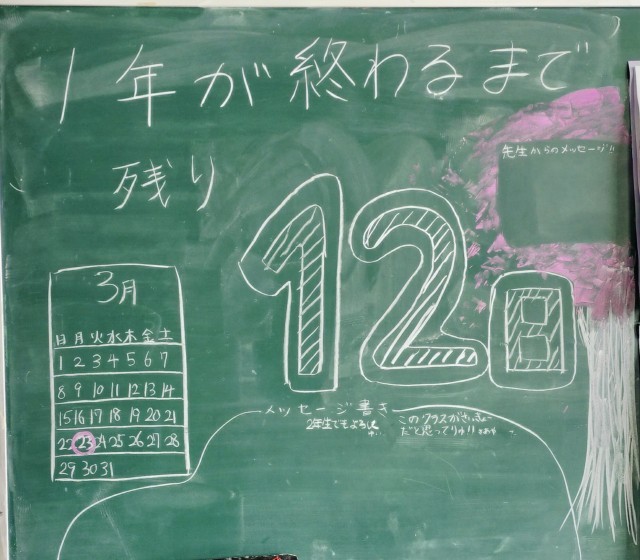 1年が終わるまで
残り
12日
先生からのメッセージ!!
3月
日月火水木金土
1 2 3 4 5 6 7
8 9 10 11 12 13 14
15 16 17 18 19 20 21
22 23 24 25 26 27 28
29 30 31
メッセージ書き
2年生でもよろしく
このクラスがさいきょー
だと思ってりゅ!!